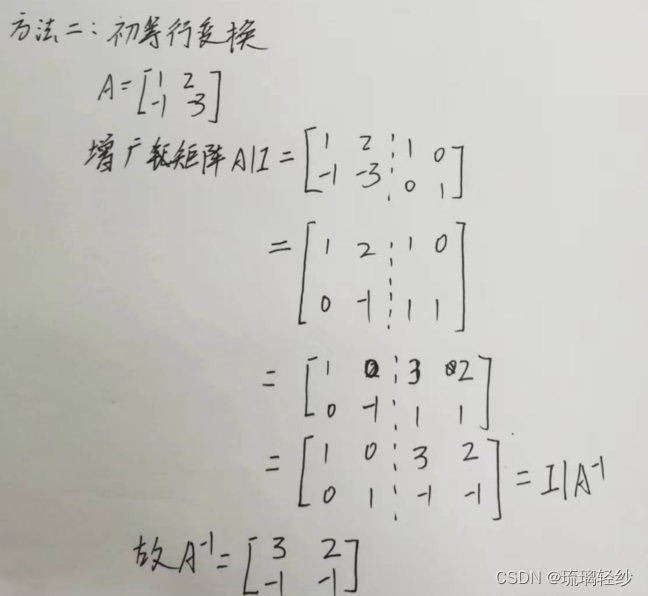 方法二：初等行变换
A=[1 2
-1 -3]
增广矩阵A|I=[1 2 ¦ 1 0
-1 -3 ¦ 0 1]
=[1 2 ¦ 1 0
0 -1 ¦ 1 1]
=[1 0 ¦ 3 2
0 -1 ¦ 1 1]
=[1 0 ¦ 3 2
0 1 ¦ -1 -1]=I|A⁻¹
故A⁻¹=[3 2
-1 -1]
CSDN @琉璃轻纱